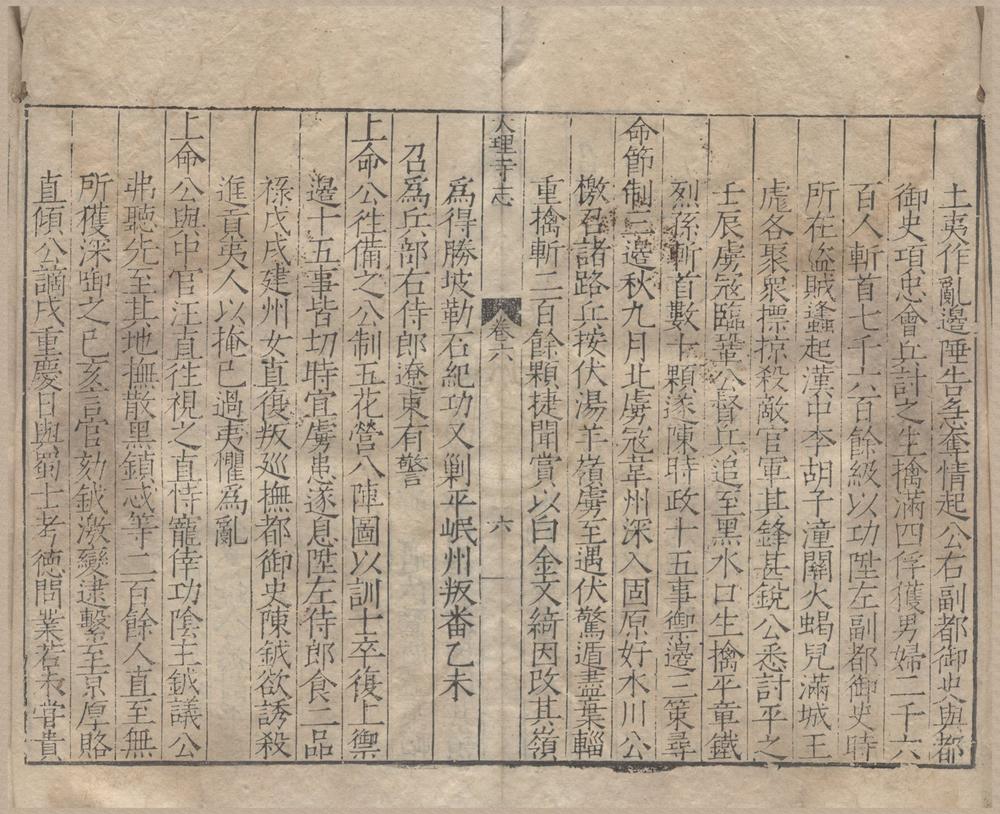 土夷作亂邊陲告急奪情起公右副都御史與都
御史項忠會兵討之生擒滿四俘獲男婦二千六
百人斬首七千六百餘級以功陞左副都御史時
所在盜賊蠭起漢中李胡子潼關火蝎兒滿城王
彪各聚衆摽掠殺敵官軍其鋒甚銳公悉討平之
壬辰虜寇臨鞏公督兵追至黑水口生擒平章鐵
烈孫斬首數十顆遂陳時政十五事禦邊三策尋
命節制三邊秋九月北虜寇韋州深入固原好水川公
檄召諸路兵按伏湯羊嶺虜至遇伏驚遁盡棄輜
重擒斬二百餘顆捷聞賞以白金文綺因改其嶺
大理寺志
卷六
六
為得勝坡勒石紀功又剿平岷州叛番乙未
召為兵部右侍郎遼東有警
上命公往備之公制五花營八陣圖以訓士卒復上禦
邊十五事皆切時宜虜患遂息陞左侍郎食二品
祿戊戌建州女直復叛廵撫都御史陳鉞欲誘殺
進貢夷人以掩己過夷懼為亂
上命公與中官汪直往視之直恃寵倖功陰主鉞議公
弗聽先至其地撫散黑鎖忒等二百餘人直至無
所獲深啣之己亥言官劾鉞激變逮繫至京厚賂
直傾公謫戍重慶日與蜀士考德問業若未甞貴